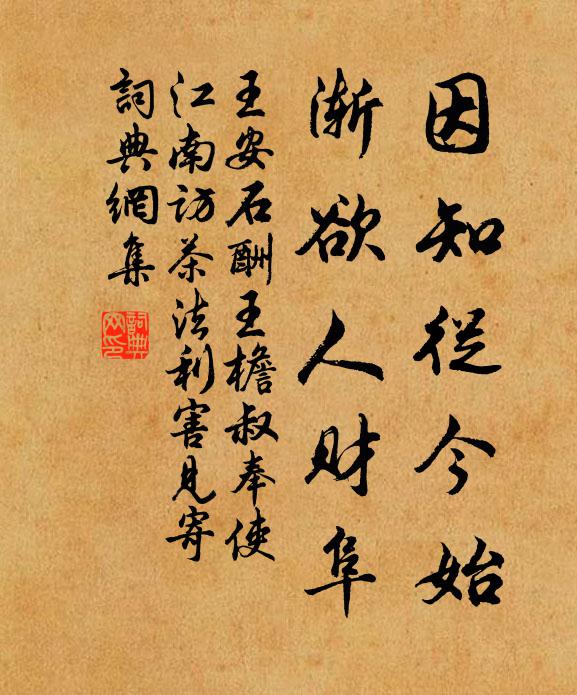 因知從今始
漸欲人財阜
王安石酬王檐叔奉使
江南訪茶法利害見寄
詞典網集
詞典網印